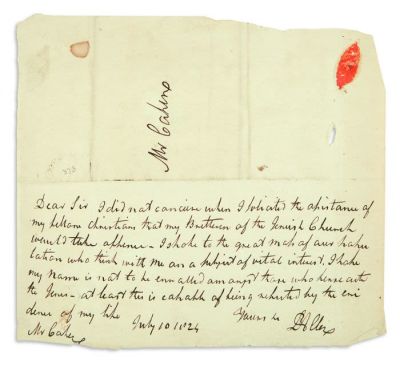 Mr Cohen
Dear Sir I did not conceive when I solicited the assistance of
my fellow christians that my Brethren of the Jewish Church
would take offence - I spoke to the great mass of our popu
lation who think with me on a subject of vital interest. I hope
my name is not to be enrolled amongst those who persecute
the Jews - at least this is capable of being refuted by the evi
dence of my life
July 10 1824
Yours
Mr Cohen